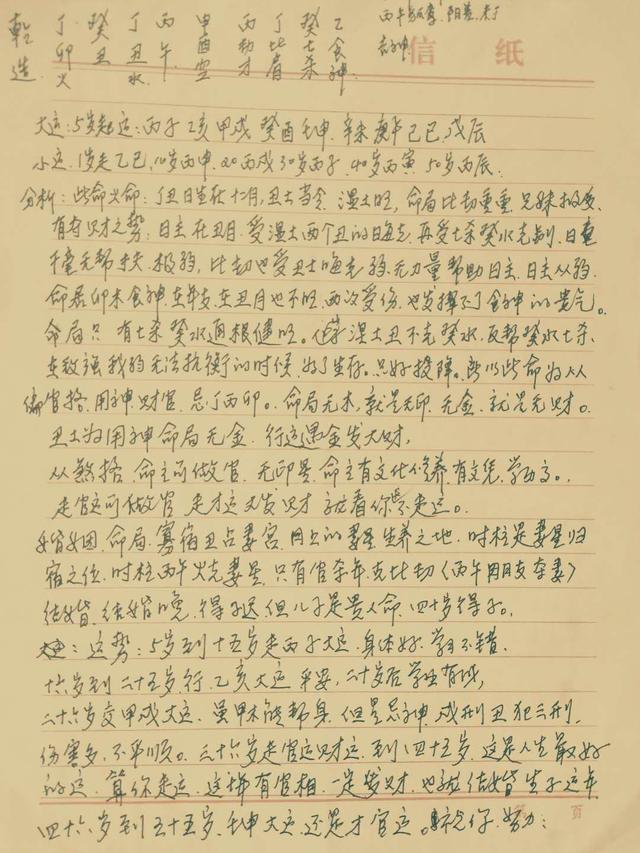 乾 丁 癸 丁 丙 甲 丙 丁 癸 乙 丙午 阳差
卯 丑 丑 午 酉 劫 比 七 食
造 火 水 空 才 肩 杀 神
信 纸
大运:5岁起运:丙子 乙亥 甲戌 癸酉 壬申 辛未 庚午 己巳 戊辰
小运,1岁走乙巳,10岁丙申,20丙戌30岁丙子,40岁丙寅,50岁丙辰.
分析:此命火命:丁丑日生在十二月,丑土当令,湿土旺,命局比劫重重,兄妹
有夺财之势:日主在丑月,受湿土两个丑的晦克,再受七杀癸水克制,日主
无帮扶,极弱,比劫也受丑土晦克弱,无力量帮助日主,日主从弱.
命局卯木食神在年支,在丑月也不旺,两次受伤,也发挥不了食神的贵气。
命局只有七杀癸水通根健旺。湿土丑不克癸水,反帮癸水七杀、
在敌强我弱无法抗衡的时候,为了生存。只好投降。所以此命为从
偏官格,用神财官,忌丁丙卯。命局无木,就是无印,无金,就是无财。
丑土为用神命局无金.行运遇金发大财,
从煞格,命主可做官,无印是,命主有文化修养,有文凭,学历高。
走官运可做官,走才运又发财,看你走运。
婚姻,命局寡宿丑占妻宫,月上的妻星生养之地,时柱是妻星归
宿之位,时柱丙午火克妻星,只有官杀年克比劫(丙午朋友夺妻)
结婚,结婚晚,得子迟,但儿子是贵人命,四十岁得子。
运势:5岁到十五岁走丙子大运,身体好,学习不错.
十六岁到二十五岁行,乙亥大运平安,二十岁后学业有成,
二十六岁交甲戌大运,虽甲木能帮身,但是忌神,戌刑丑犯三刑,
伤害多,不平顺。三十六岁走官运财运,到四十五岁,这是人生最好
的运,算你走运,这样有官相,一定发财,也结婚生子这年
四十六岁到五十五岁,壬申大运,还是才官运。你,努力:
页